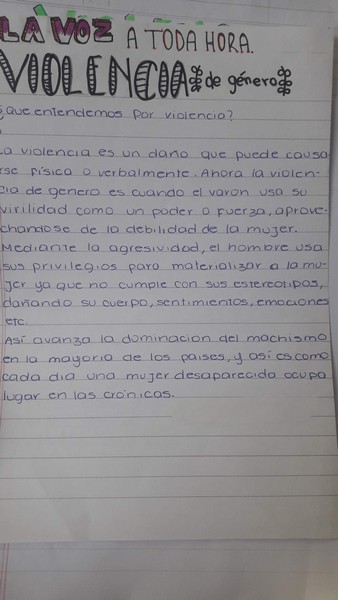 LA VOZ A TODA HORA.
VIOLENCIA de género
¿Que entendemos por violencia?
La violencia es un daño que puede causa-
rse física o verbalmente. Ahora la violen-
cia de genero es cuando el varon usa su
virilidad como un poder o fuerza, aprove-
chandose de la debilidad de la mujer.
Mediante la agresividad, el hombre usa
sus privilegios para materializar a la mu-
jer ya que no cumple con sus estereotipos,
dañando su cuerpo, sentimientos, emociones
etc.
Así avanza la dominacion del machismo
en la mayoria de los paises, y así es como
cada dia una mujer desaparecida ocupa
lugar en las crónicas.